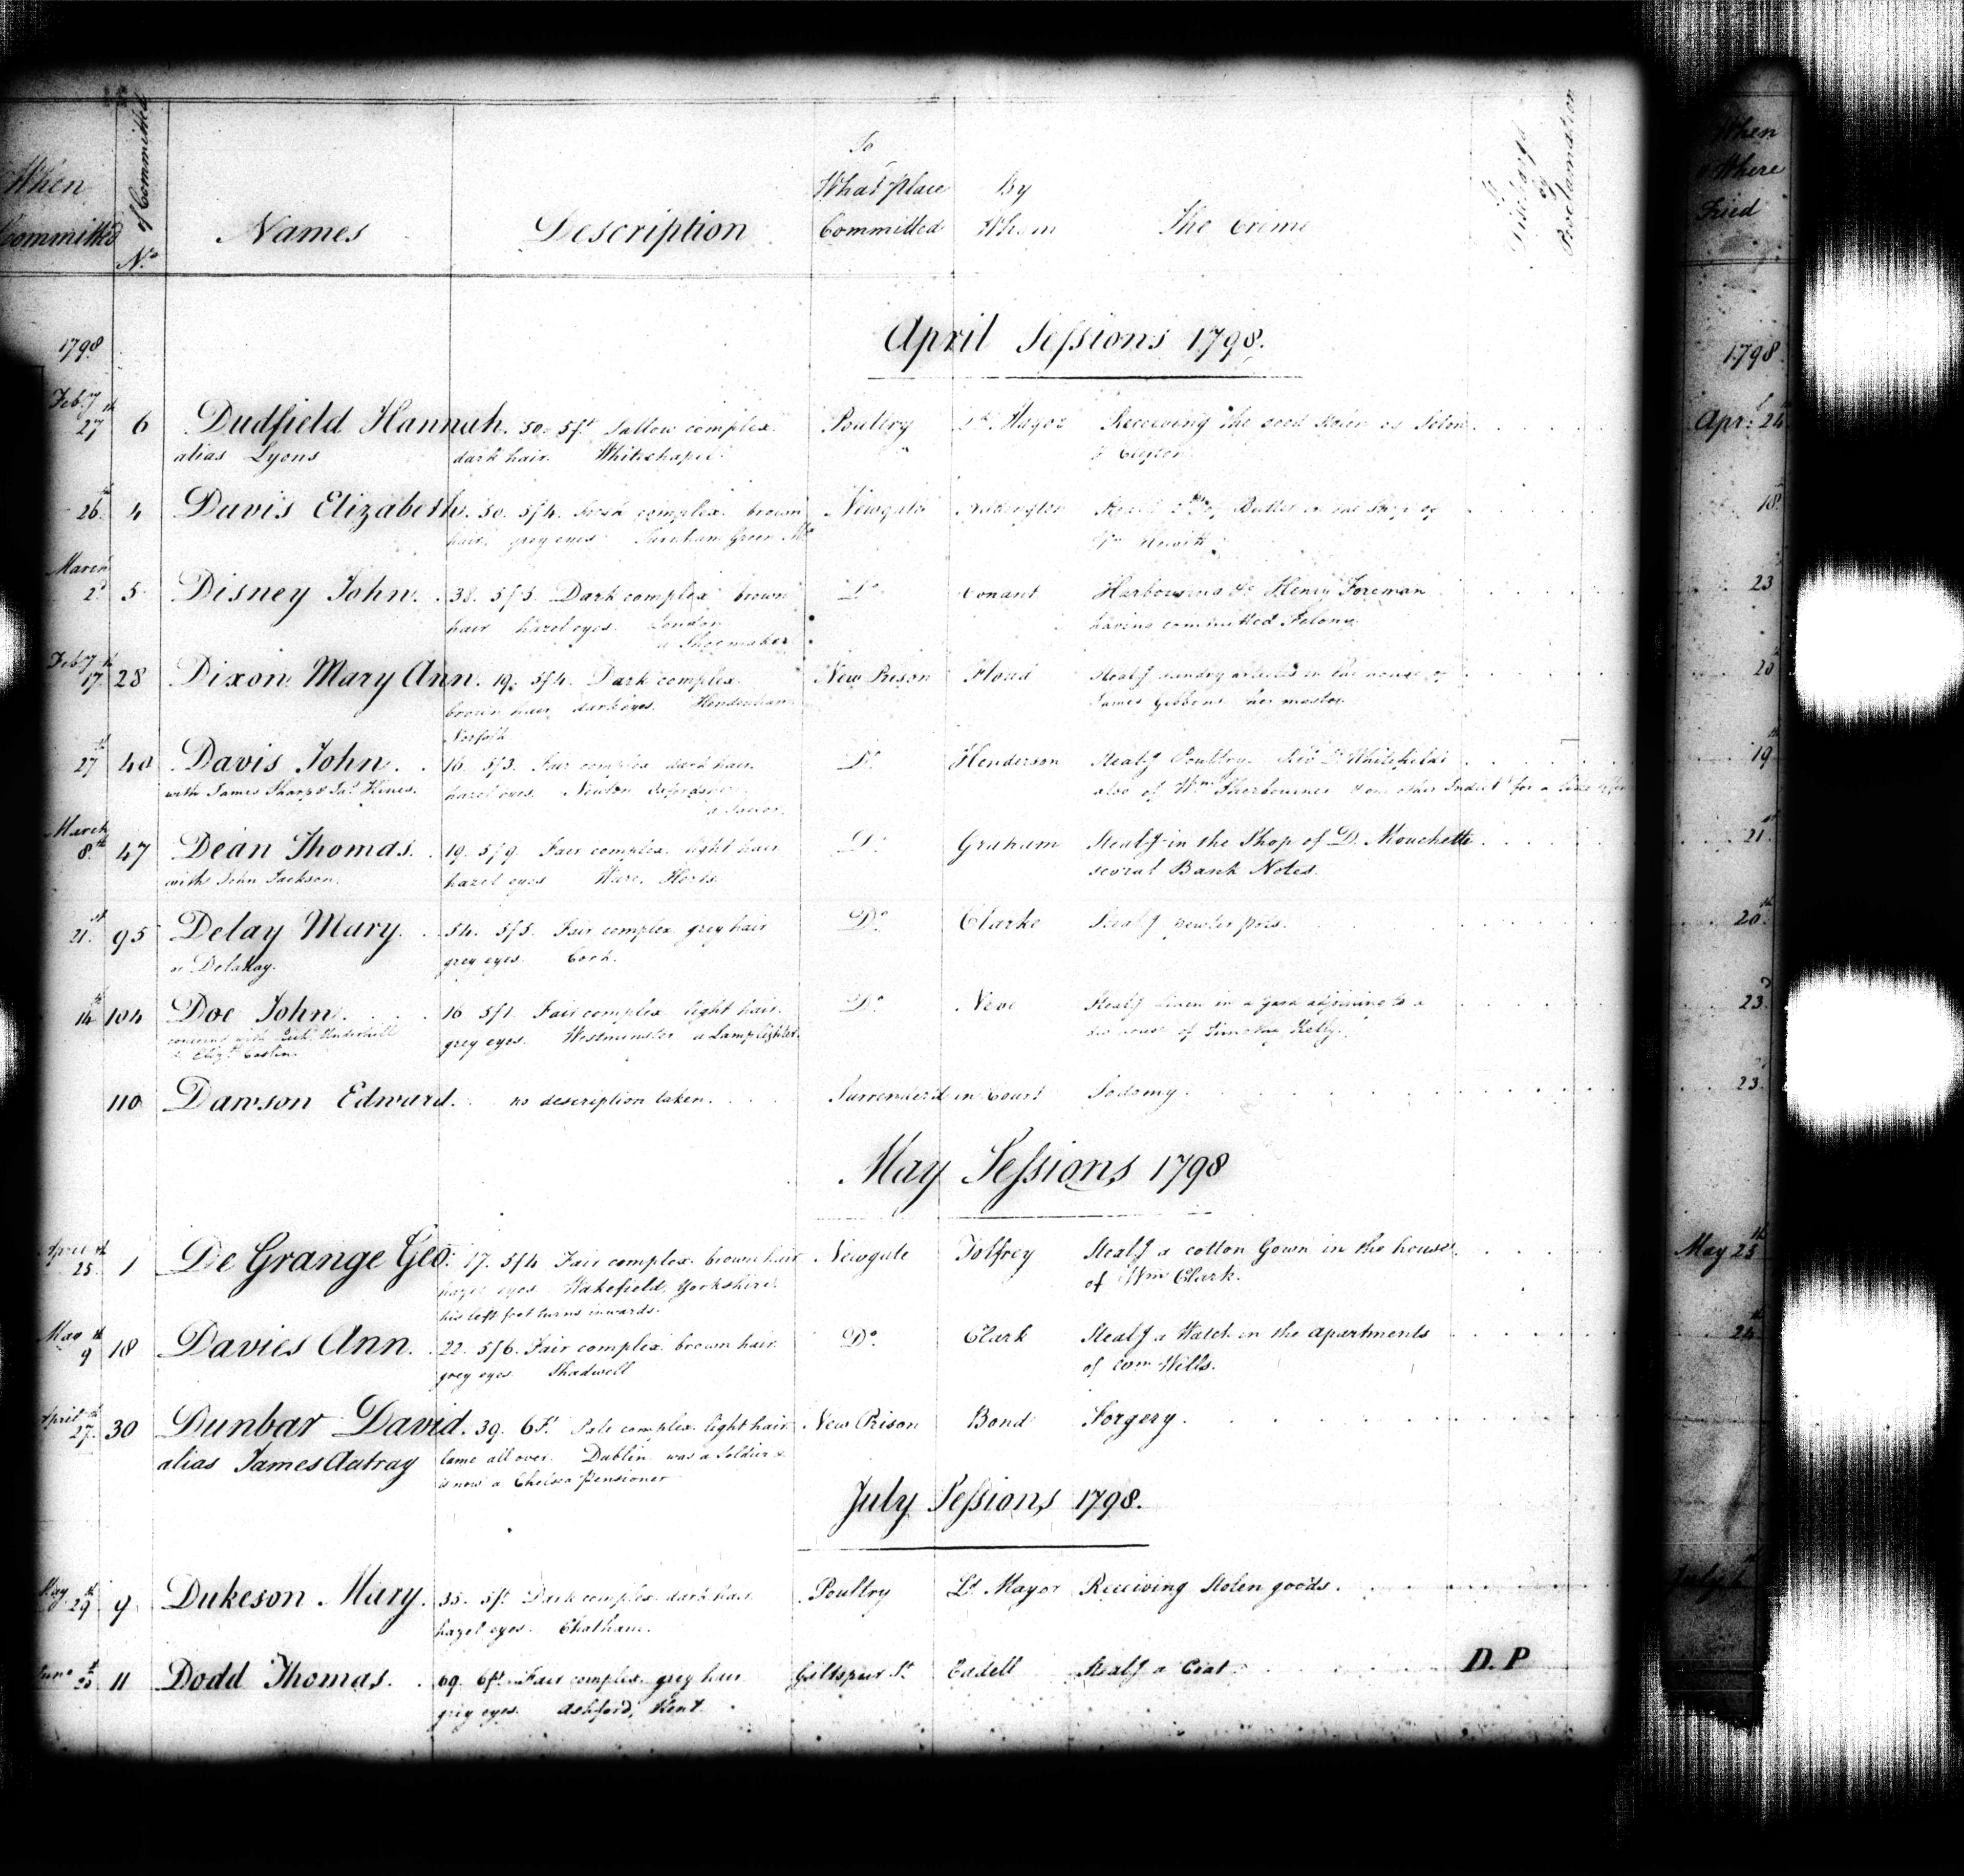 When Committed
of Committed
No.
Names
Description
To What Place Committed
By Whom
The Crime
Discharged by Proclamation
When & Where Tried
April Sessions 1798.
1798
1798
Feb.y 27th 6 Dudfield Hannah. 50. 5ft Sallow complex. Poultry Ld. Mayor Receiving the Apr: 24
alias Lyons dark hair. Whitechapel.
26th 4 Davis Elizabeth. 30. 5/4. Fresh complex. brown Newgate Butter in the Shop of 18
hair, grey eyes. Turnham Green Mx Wm Hewitt
March 2d 5 Disney John. 38. 5/5. Dark complex. brown Do Conant Harbouring &c Henry Foreman 23
hair hazel eyes. London having committed Felony
a Shoemaker
Feb.y 17th 28 Dixon Mary Ann. 19. 5/4. Dark complex. New Prison Floud Stealg sundry articles in the house of 20
brown hair, dark eyes. James Gibbons her master.
Norfolk
27th 40 Davis John. 16. 5/3. Fair complex. dark hair Do. Henderson Stealg Poultry. 19th
with James Sharp & Jas. Hines. hazel eyes. Newton also of Wm Sherbourne & one other Indict.t for a like
March 8th 47 Dean Thomas. 19. 5/9. Fair complex. light hair Do. Graham Stealg in the Shop of D. Mouchette 21st
with John Jackson. hazel eyes Ware, Herts. several Bank Notes.
21st 95 Delay Mary. 54. 5/5. Fair complex grey hair Do. Clarke Stealg pewter pots. 20th
or Delahay. grey eyes. Cork.
14th 104 Doe John. 16 5/1. Fair complex light hair. Do. Neve Stealg linen in a Yard adjoining to a 23d
concerned with Richd. Underhill grey eyes. Westminster a Lamplighter. house of Timothy Kelly.
& Elizth. Costin.
110 Dawson Edward. no description taken. Surrender'd in Court Sodomy. 23.
May Sessions 1798
April 25th 1 De Grange Geo. 17. 5/4 Fair complex. brown hair Newgate Tolfrey Stealg a cotton Gown in the house May 25th
hazel eyes Wakefield, Yorkshire. of Wm Clark.
his left foot turns inwards.
May 9th 18 Davies Ann. 22. 5/6. Fair complex. brown hair Do. Clark Stealg a Watch in the apartments 24th
grey eyes. Shadwell of Wills.
April 27th 30 Dunbar David. 39. 6Ft Pale complex. light hair New Prison Bond Forgery.
alias James lame all over. Dublin was a Soldier &
is now a Chelsea Pensioner
July Sessions 1798.
May 29th 9 Dukeson Mary. 35. 5ft Dark complex. dark hair Poultry Ld Mayor Receiving Stolen goods.
hazel eyes. Chatham.
June 11 Dodd Thomas. 69. 6ft. Fair complex. grey hair Giltspur St. Cadell Stealg a Coat D. P
grey eyes. Ashford, Kent.